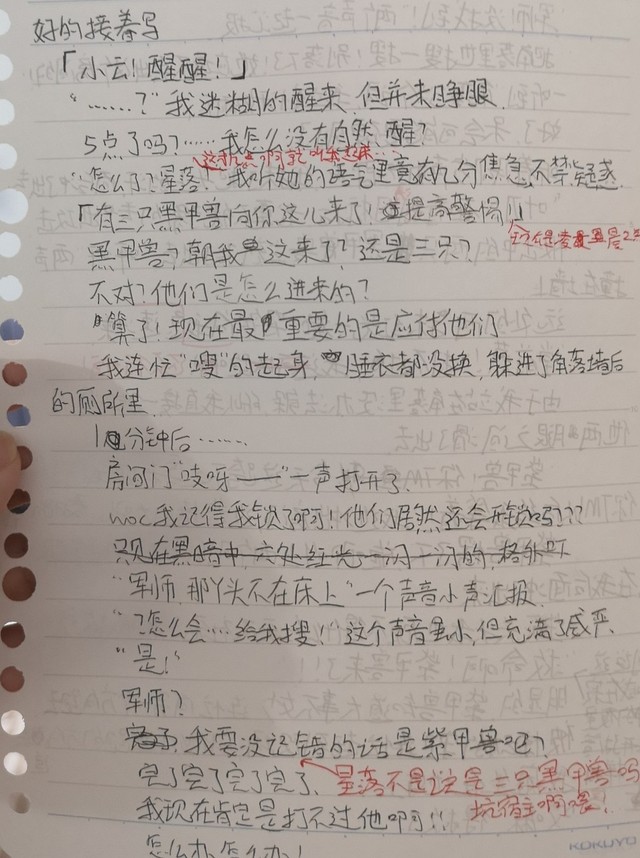 好的接着写
「小云！醒醒！」
“……？”我迷糊的醒来，但并未睁眼．
5点了吗？……我怎么没有自然醒？
这才几点啊就叫我起来
“怎么了？星落．”我听她的语气里竟有几分焦急，不禁疑惑．
「有三只黑甲兽向你这儿来了！提高警惕！」
黑甲兽？朝我这来了？还是三只？
不对？他们是怎么进来的？
算了！现在最重要的是应付他们
我连忙“嗖”的起身，睡衣都没换，躲进了角落墙后
的厕所里．
10分钟后……
房间门“吱呀——”一声打开了．
woc我记得我锁了啊！他们居然还会开锁吗???
只见在黑暗中，六处红光一闪一闪的，格外吓
“军师，那丫头不在床上”一个声音小声汇报．
“？怎么会……给我搜！”这个声音虽小，但充满了威严．
“是！”
军师？
我要没记错的话是紫甲兽吧？
完了完了完了完了． 星落不是说是三只黑甲兽吗
坑宿主啊喂！
我现在肯定是打不过他啊！！
怎么办怎么办！
KOKUYO